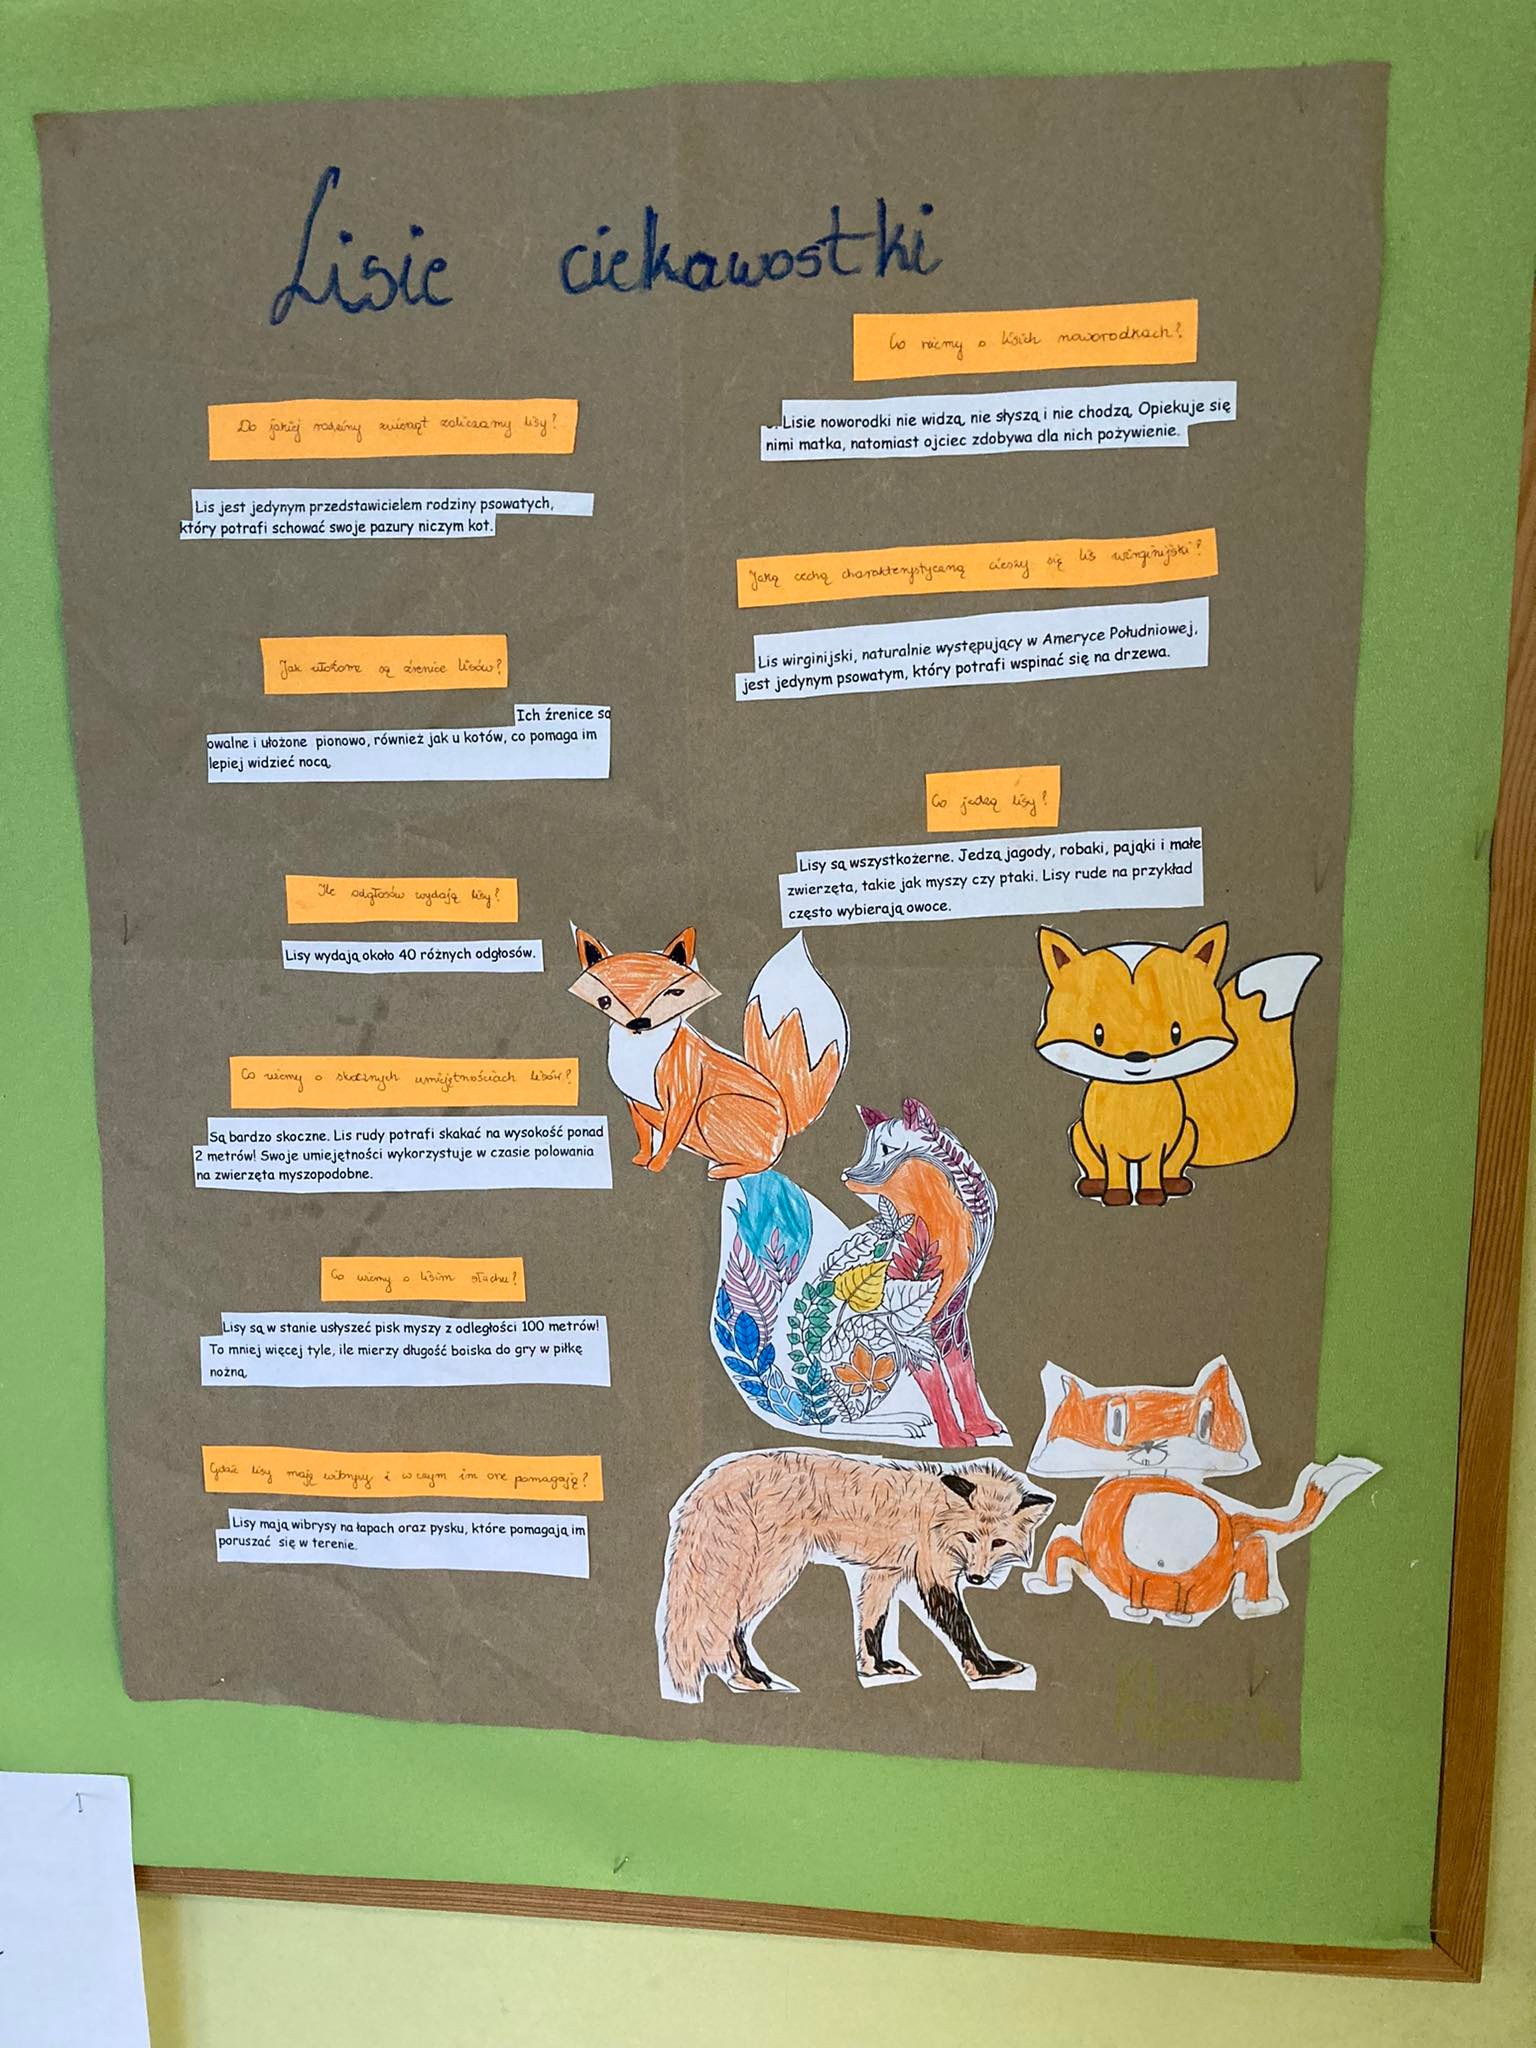 Lisie ciekawostki
Do jakiej rodziny zwierząt zaliczamy lisy?
Lis jest jedynym przedstawicielem rodziny psowatych,
który potrafi schować swoje pazury niczym kot.
Jak ułożone są źrenice lisów?
Ich źrenice są
owalne i ułożone pionowo, również jak u kotów, co pomaga im
lepiej widzieć nocą
Ile odgłosów wydają lisy?
Lisy wydają około 40 różnych odgłosów.
Co wiemy o skocznych umiejętnościach lisów?
Są bardzo skoczne. Lis rudy potrafi skakać na wysokość ponad
2 metrów! Swoje umiejętności wykorzystuje w czasie polowania
na zwierzęta myszopodobne.
Co wiemy o lisim słuchu?
Lisy są w stanie usłyszeć pisk myszy z odległości 100 metrów!
To mniej więcej tyle, ile mierzy długość boiska do gry w piłkę
nożną
Gdzie lisy mają wibrysy i w czym im one pomagają?
Lisy mają wibrysy na łapach oraz pysku, które pomagają im
poruszać się w terenie.
Co wiemy o lisich noworodkach?
Lisie noworodki nie widzą, nie słyszą i nie chodzą. Opiekuje się
nimi matka, natomiast ojciec zdobywa dla nich pożywienie.
Jaką cechą charakterystyczną cieszy się lis wirginijski?
Lis wirginijski, naturalnie występujący w Ameryce Południowej,
jest jedynym psowatym, który potrafi wspinać się na drzewa.
Co jedzą lisy?
Lisy są wszystkożerne. Jedzą jagody, robaki, pająki i małe
zwierzęta, takie jak myszy czy ptaki. Lisy rude na przykład
często wybierają owoce.